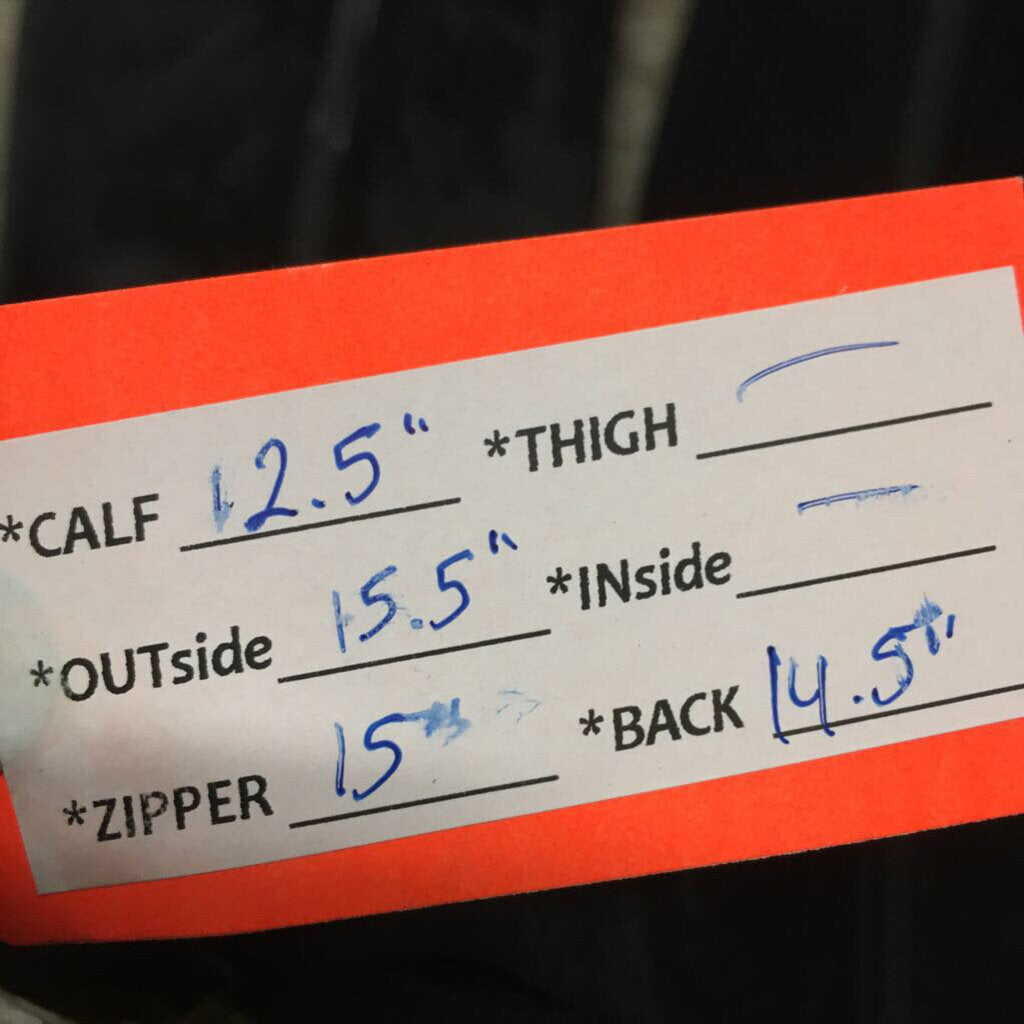 *CALF 12.5" *THIGH —
*OUTside 15.5" *INside —
*ZIPPER 15" *BACK 14.5"